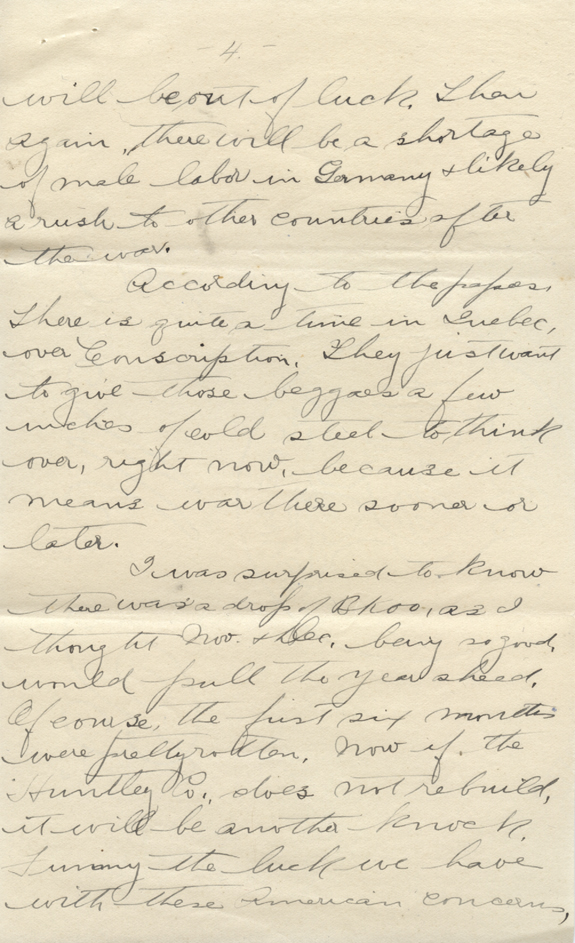 - 4. -
will be out of luck. Then
again, there will be a shortage
of male labor in Germany & likely
a rush to other countries after
the war.
According to the papers,
There is quite a time in Quebec,
over Conscription. They just want
to give those beggars a few
inches of cold steel to think
over, right now, because it
means war there sooner or
later.
I was surprised to know
there was a drop of as I
thought Nov. & Dec. being so good,
would pull the year ahead.
Of course, the first six months
were pretty rotten. Now if the
Huntley Co., does not rebuild,
it will be another knock.
Funny the luck we have
with these American concerns,